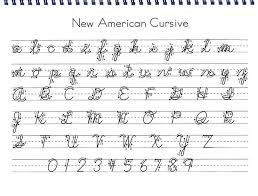 New American Cursive
a b c d e f g h i j k l m
n o p q r s t u v w x y z
A B C D E F G H I
J K L M N O P Q R
S T U V W X Y Z
0 1 2 3 4 5 6 7 8 9